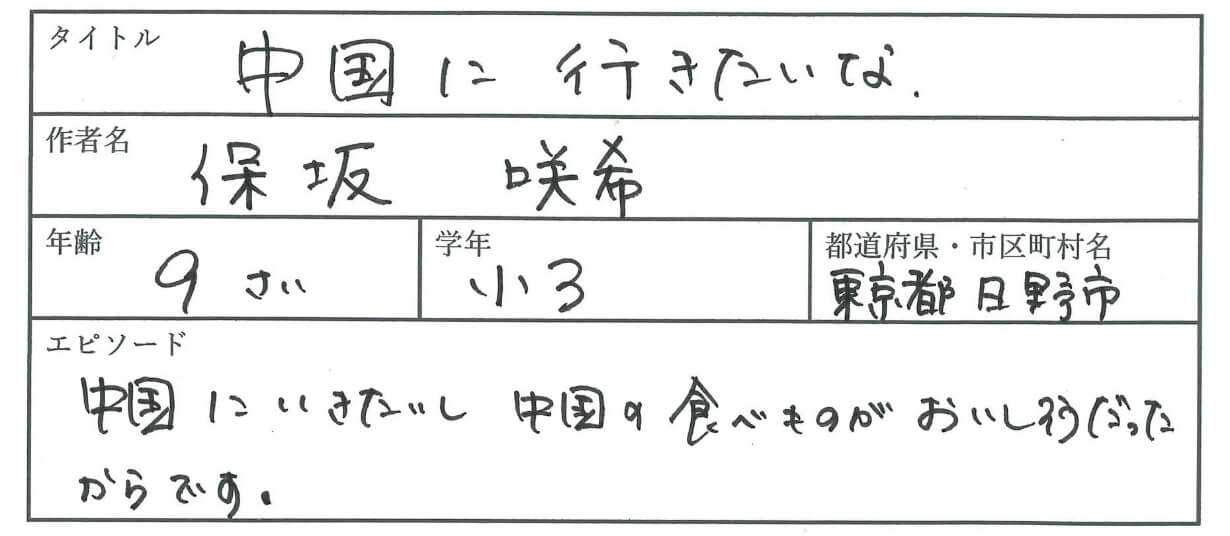 タイトル
中国に行きたいな.
作者名
保坂 咲希
年齢
9さい
学年
小3
都道府県・市区町村名
東京都日野市
エピソード
中国にいきたいし 中国の食べものがおいしそうだった
からです。